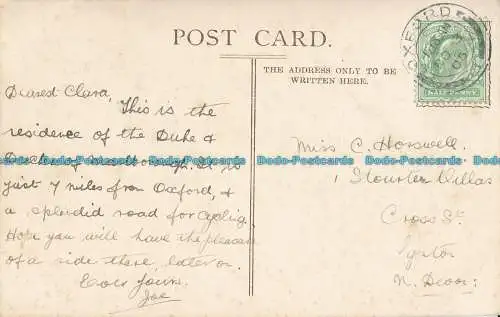 POST CARD.
THE ADDRESS ONLY TO BE
WRITTEN HERE.
OXFORD
Dearest Clara,
This is the
residence of the Duke &
Duchess of Marlborough. It is
just 7 miles from Oxford, &
a splendid road for cycling.
Hope you will have the pleasure
of a ride there, later on.
Ever Yours,
Joe
Miss C. Horswell.
1 Villas
Cross St.
Lynton
N. Devon:
Dodo-Postcards Dodo-Postcards Dodo-Postcards Dodo-Postcards Dodo-Postcards